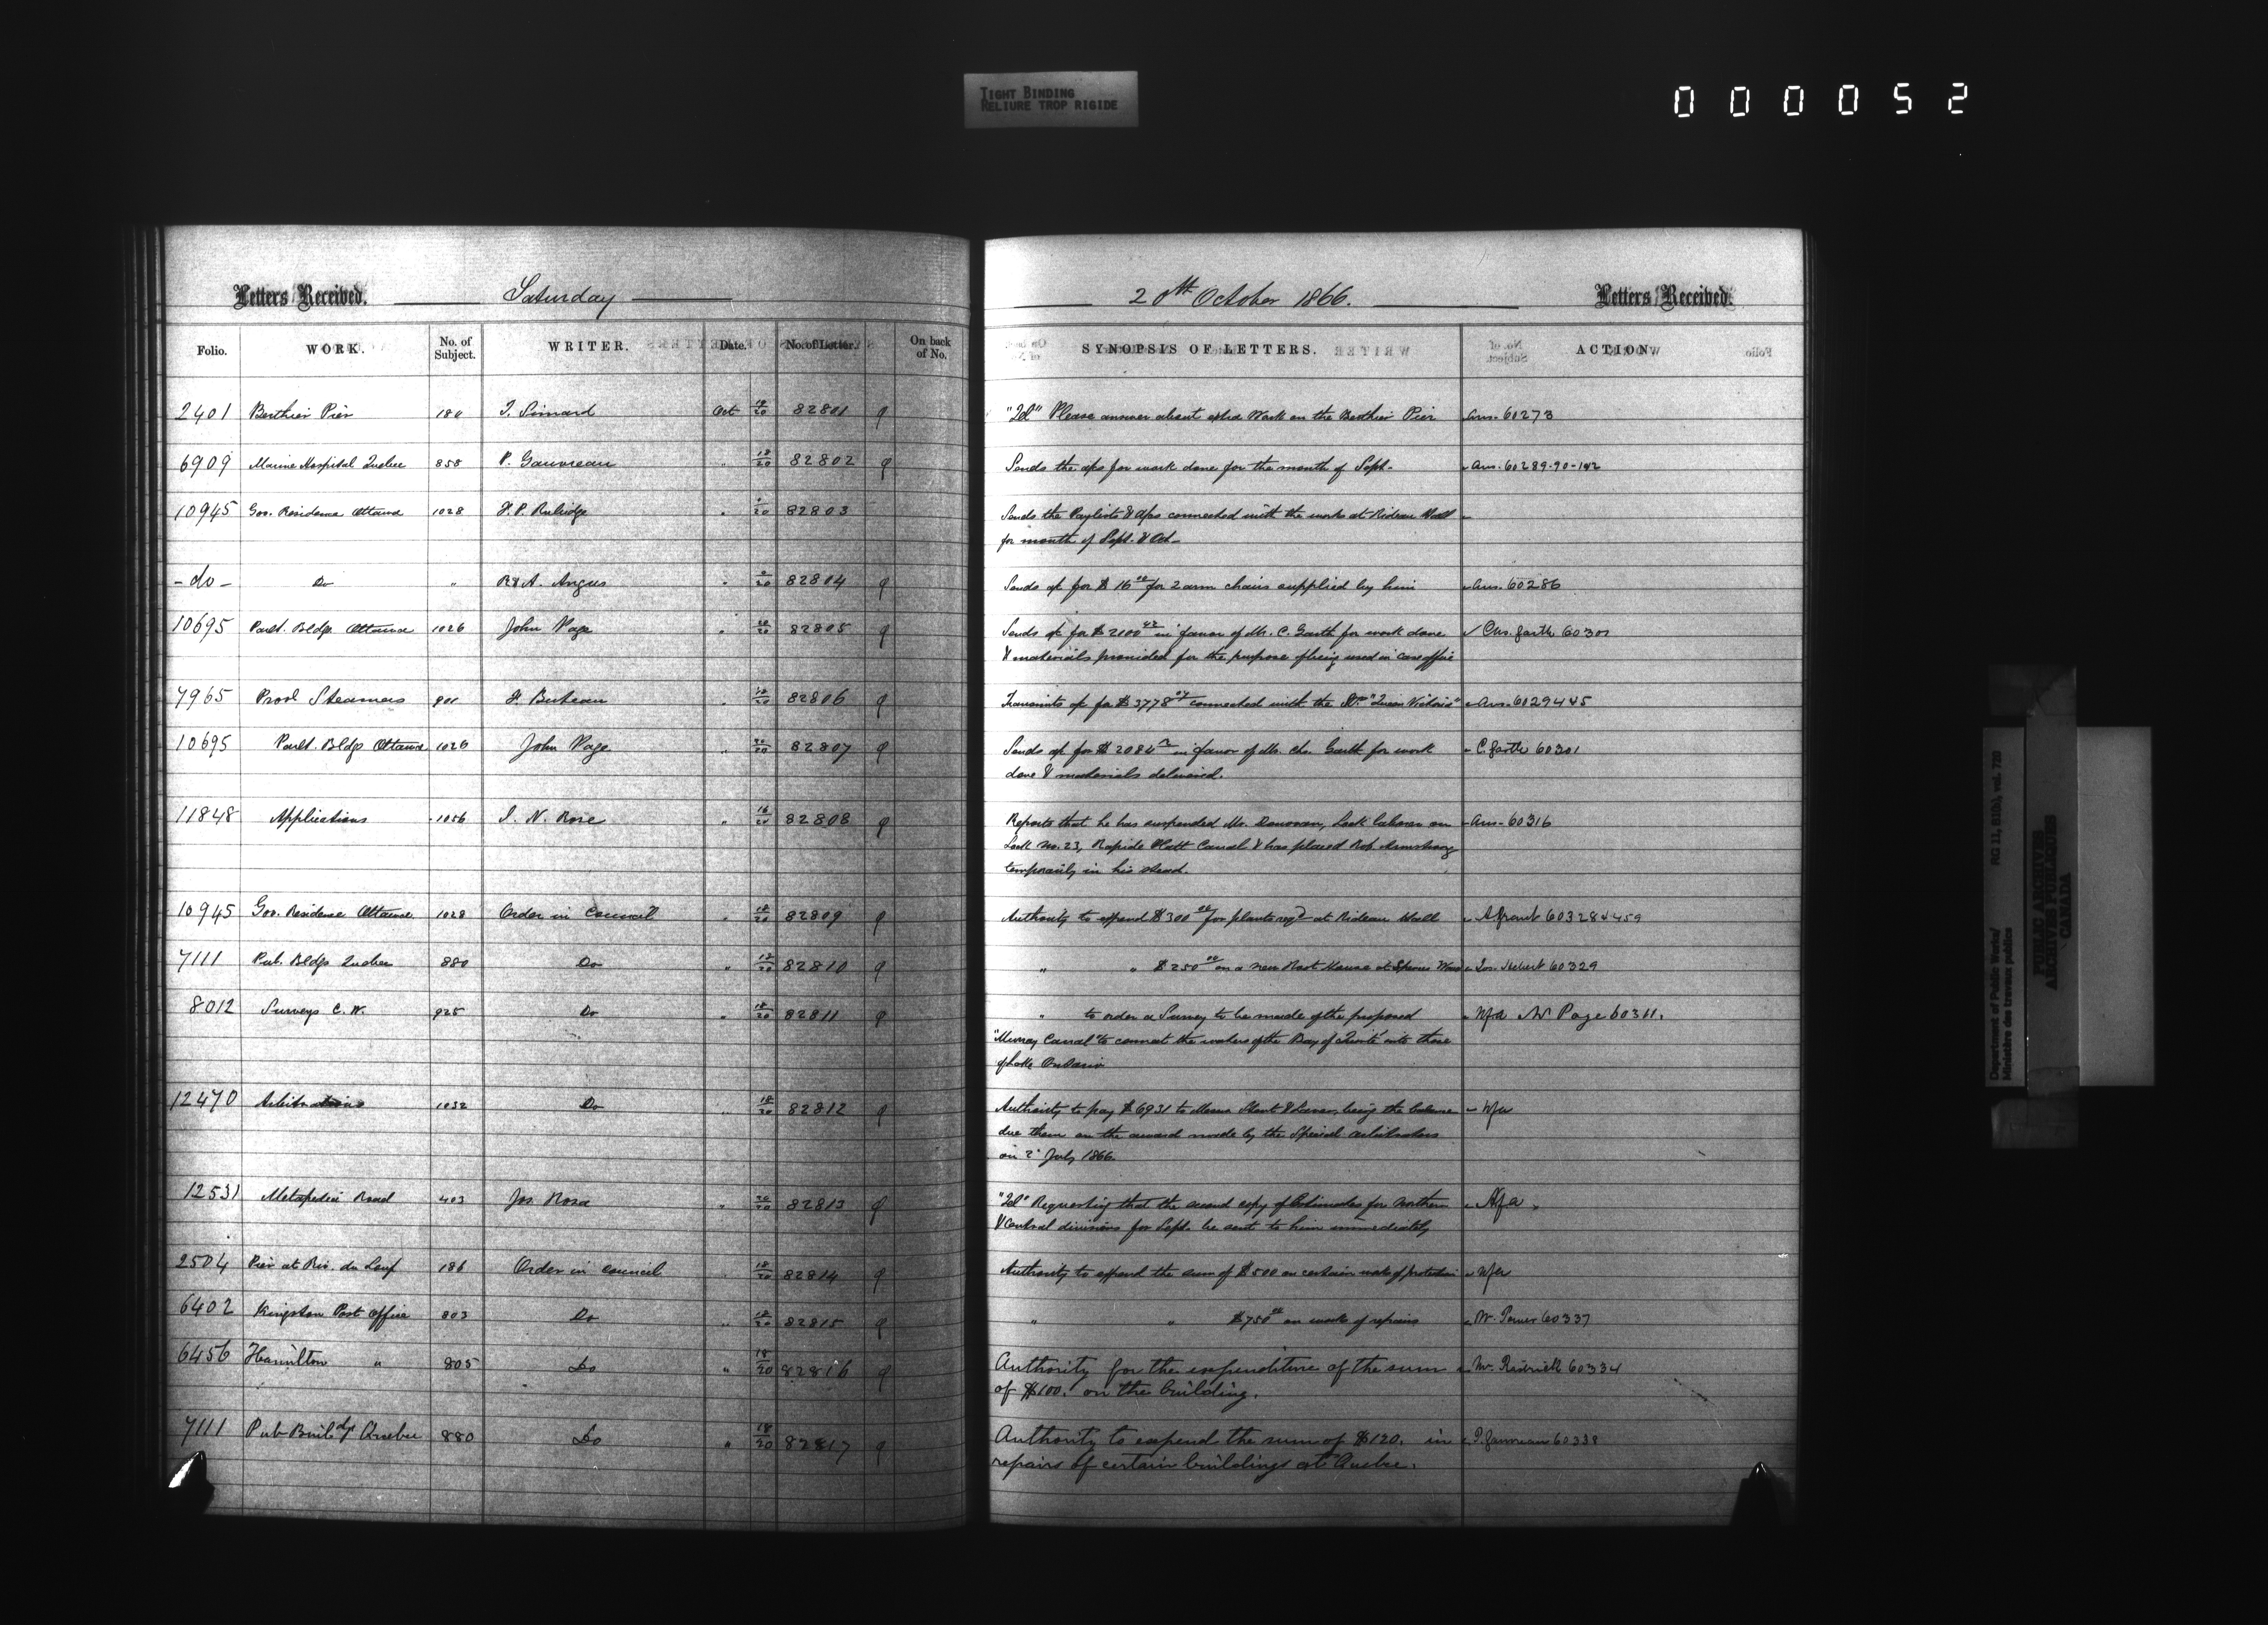 TIGHT BINDING
RELIURE TROP RIGIDE
000052
Letters Received. Saturday
20th October 1866. Letters Received.
Folio. WORK. No. of Subject. WRITER. Date. No. of Letter. On back of No. SYNOPSIS OF LETTERS. ACTION
2401 Berthier Pier 180 T. Simard Oct 19/20 82801 "Tel" Please answer about extra Work on the Berthier Pier Ans. 60273
6909 Marine Hospital Quebec 858 P. Gauvreau " 18/20 82802 Sends the a/cs for work done for the month of Sept. Ans. 60289-90-
10945 Gov. Residence Ottawa 1028 F. P. Rubidge " "/20 82803 Sends the Paylists & a/cs connected with the works at Rideau Hall
for month of Sept. & Oct.
-do- Do " R & A. Angus " 82804 Sends a/c for $16 00 for 2 arm chairs supplied by him Ans. 60286
10695 Parlt. Bldgs. Ottawa 1026 John Page " 20/20 82805 Sends a/c for $2100 in favor of Mr. C. Garth for work done Chs. Garth 60301
& materials provided for the purpose of being used in
7965 Provl Steamers 901 F. Buteau " 18/20 82806 Transmits a/c for $3778 connected with the Str "Queen Victoria" Ans. 60294 & 45
10695 Parlt. Bldgs Ottawa 1026 John Page " 20/20 82807 Sends a/c for $2084 in favor of Mr. Chs. Garth for work C. Garth 60301
done & materials delivered.
11848 Applications 1056 I. N. Rose " 16/20 82808 Reports that he has suspended Mr. Donovan, Lock laborer on Ans. 60316
Lock No. 23, Rapide Platt Canal & has placed Rob. Armstrong
temporarily in his stead.
10945 Gov. Residence Ottawa 1028 Order in Council " 18/20 82809 Authority to expend $300 00 for plants reqd at Rideau Hall 60328 & 459
7111 Pub. Bldgs Quebec 880 Do " 18/20 82810 " " $250 00 on a new Root House at Spencer Wood Jos. Hebert 60329
8012 Surveys C. W. 925 Do " 18/20 82811 " to order a Survey to be made of the proposed Nfa Mr Page 60311.
"Murray Canal" to connect the waters of the Bay of Quinté into those
of Lake Ontario
12470 Arbitrations 1032 Do " 18/20 82812 Authority to pay $6931 to Messrs being the balance Nfa
due them on the award made by the Special arbitrators
on 2d July 1866.
12531 Metapedia Road 403 Jos. Rosa " 20/20 82813 "Tel" Requesting that the second copy of Estimates for Northern Nfa
& Central divisions for Sept. be sent to him immediately
2504 Pier at Riv. du Loup 186 Order in Council " 18/20 82814 Authority to expend the sum of $500 on certain works of protection Nfa
6402 Kingston Post Office 803 Do " 18/20 82815 " " $750 00 on works of repairs W. Power 60337
6456 Hamilton " 805 Do " 18/20 82816 Authority for the expenditure of the sum 60334
of $100. on the building.
7111 Pub Buildgs Quebec 880 Do " 18/20 82817 Authority to expend the sum of $120. in P. Gauvreau 60338
repairs of certain buildings at Quebec.
Department of Public Works/
Ministère des travaux publics
RG 11, B1(b), vol. 720
PUBLIC ARCHIVES
ARCHIVES PUBLIQUES
CANADA